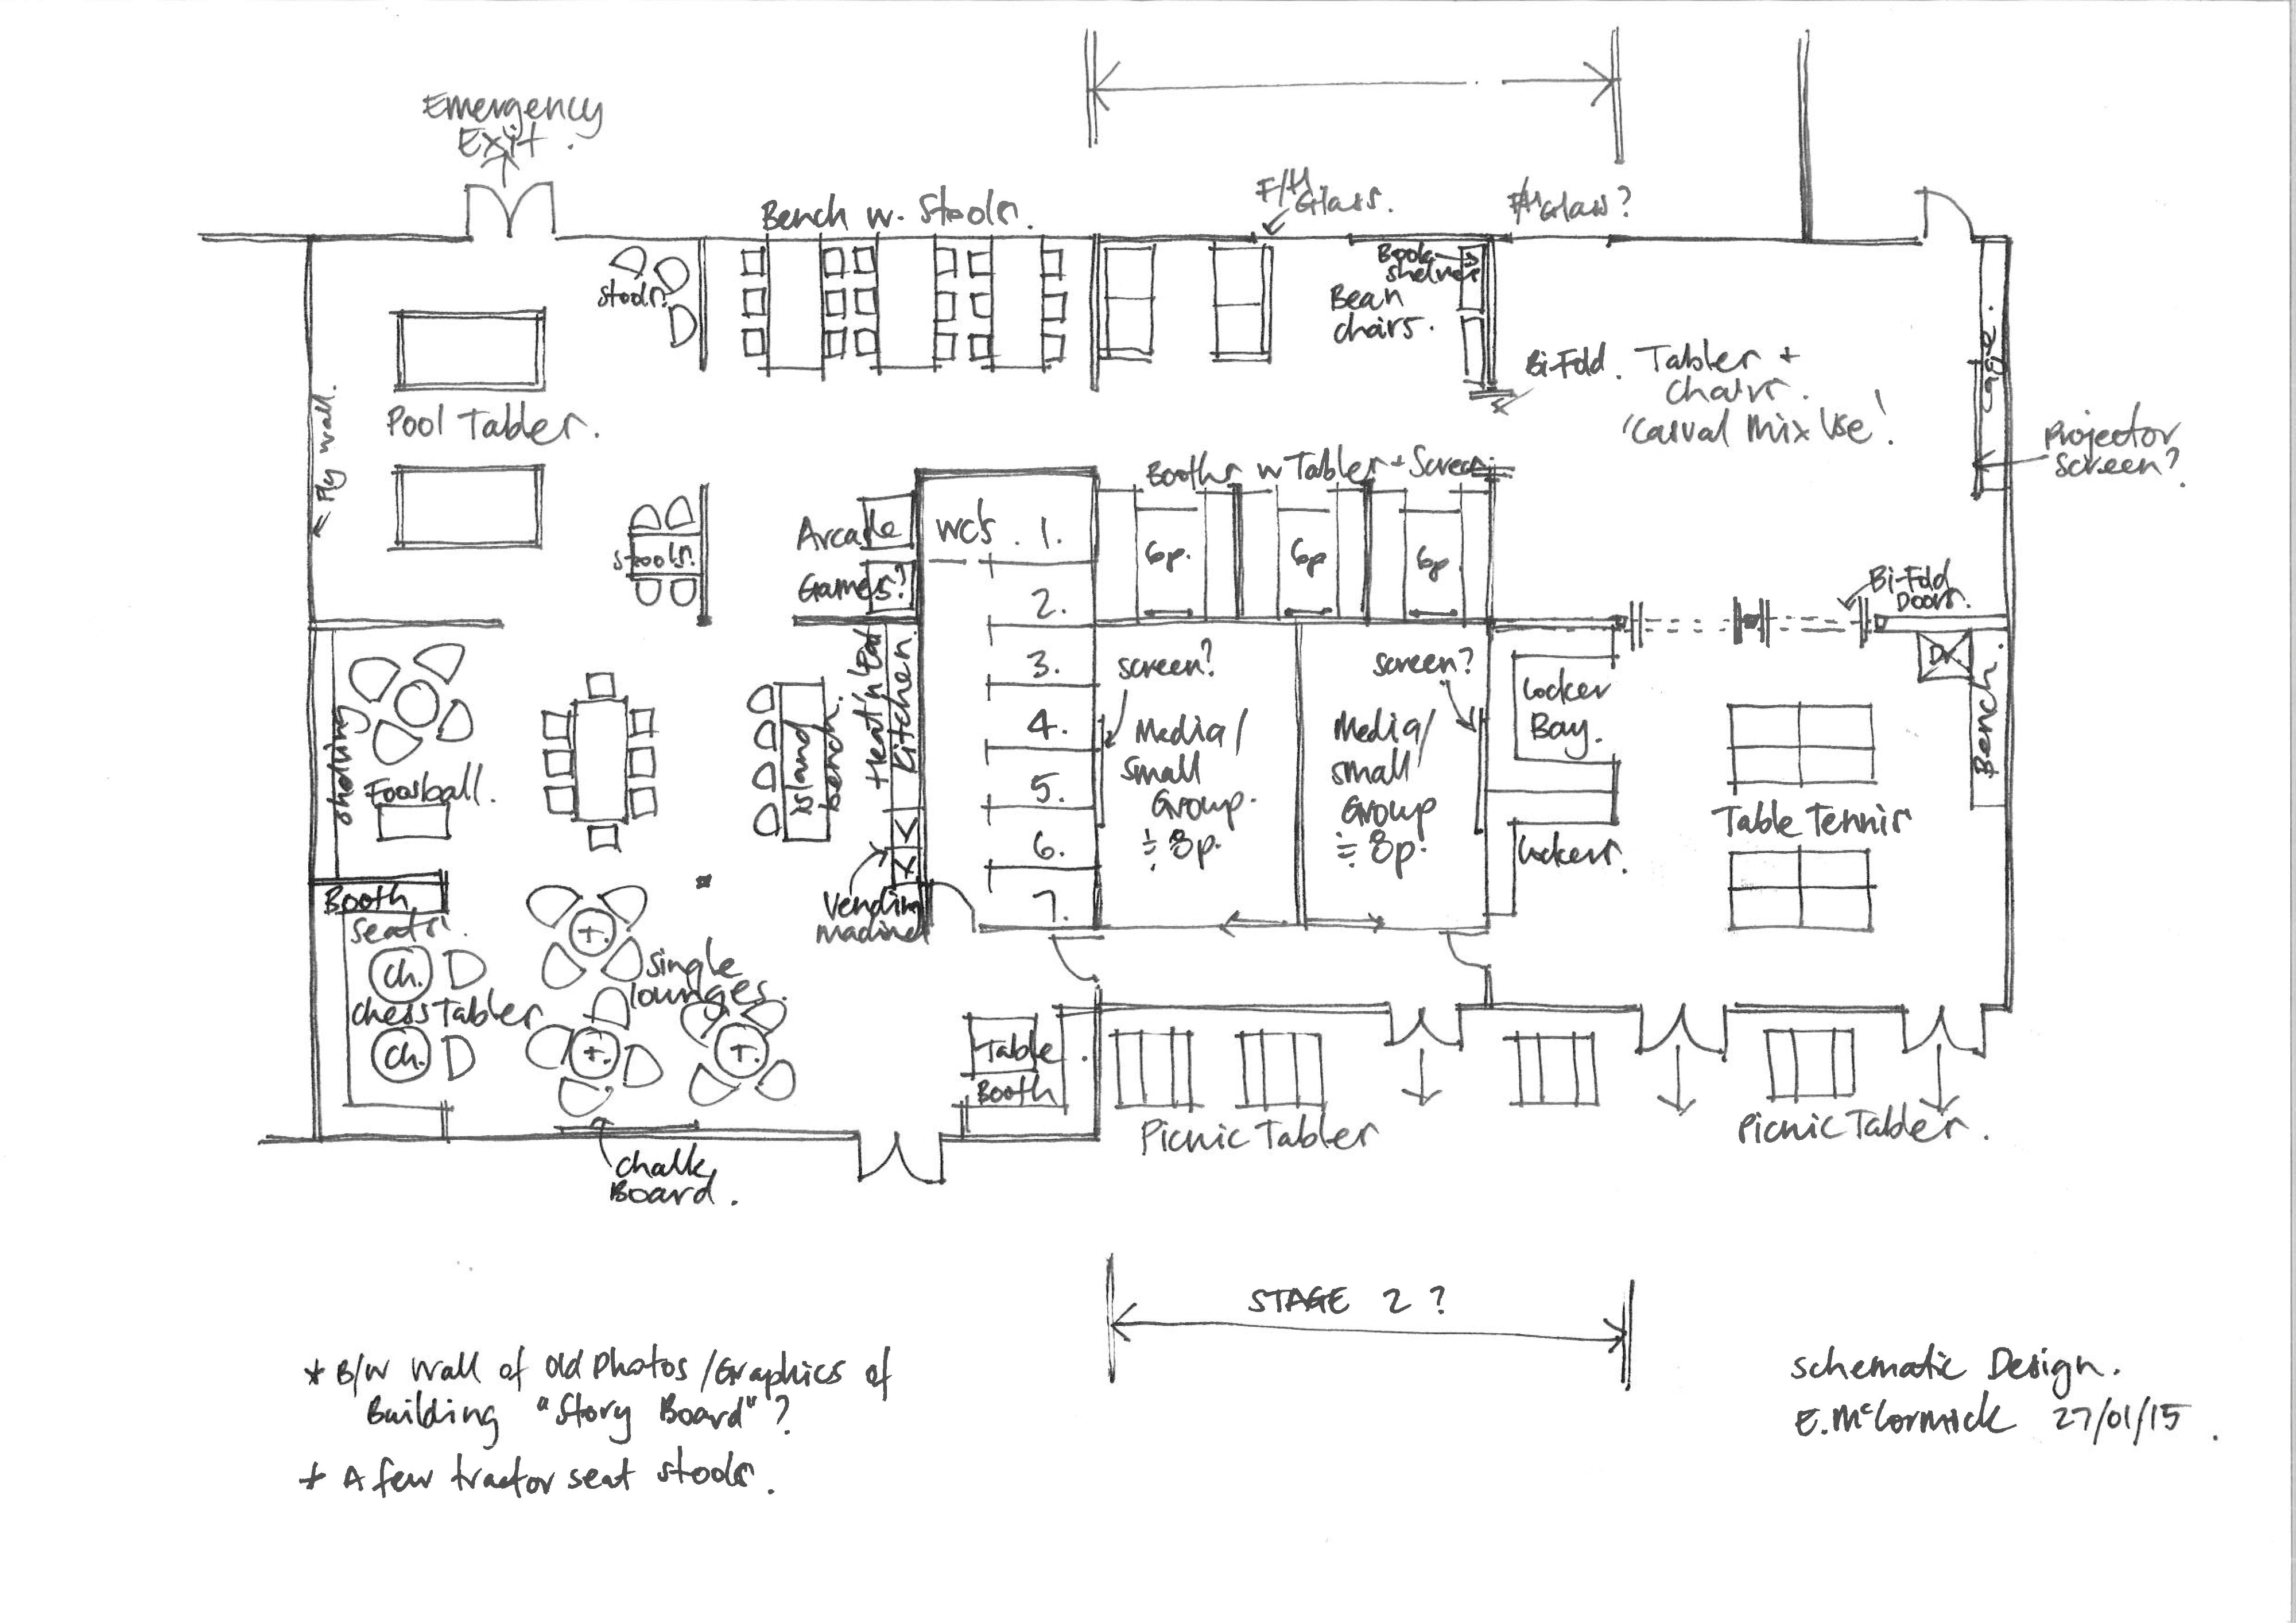 Emergency
Exit.
Bench w. Stools.
F/H
Glass.
F/H Glass?
Stools.
Book
shelves
Bean
chairs.
Bi-Fold.
Tables +
chairs.
'Casual Mix Use'.
Projector
Screen?
Pool Tables.
Ply wall.
Stools.
Arcade
Games?
WC's. 1.
2.
3.
4.
5.
6.
7.
Booths w Tables + Screens
6p.
6p
6p
Bi-Fold
Doors.
Bench.
Heat'n'Eat
Kitchen.
Island
bench.
shelving
Foosball.
screen?
Media/
Small
Group.
≑ 8p.
screen?
Media/
Small
Group
≑ 8p.
Locker
Bay.
Lockers.
Table Tennis
Booth
Seats.
Ch.
Chess Tables
Ch.
T.
T.
T.
Single
lounges.
Vending
Machines
Table.
Booth
Chalk
Board.
Picnic Tables
Picnic Tables.
STAGE 2 ?
* B/W Wall of Old Photos /Graphics of
Building "Story Board"?
* A few tractor seat stools.
Schematic Design.
E. McCormick 27/01/15.